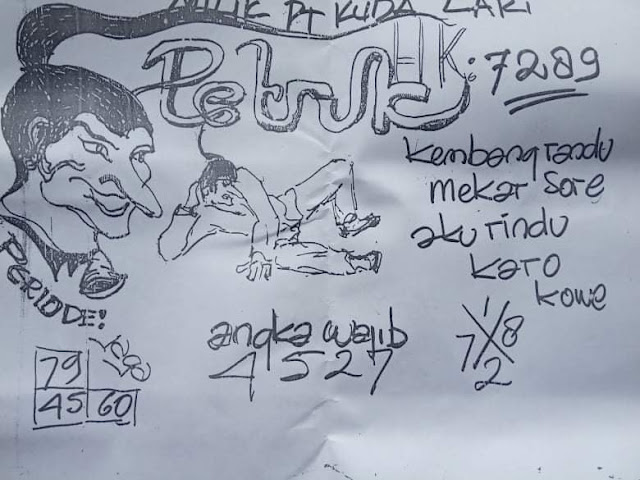 MILIK PT KUDA LARI
HK: 7289
Kembang randu
mekar sore
aku rindu
karo
kowe
PERIODE!
angka wajib
4 5 2 7
1
7 X 8
2
79
45 60